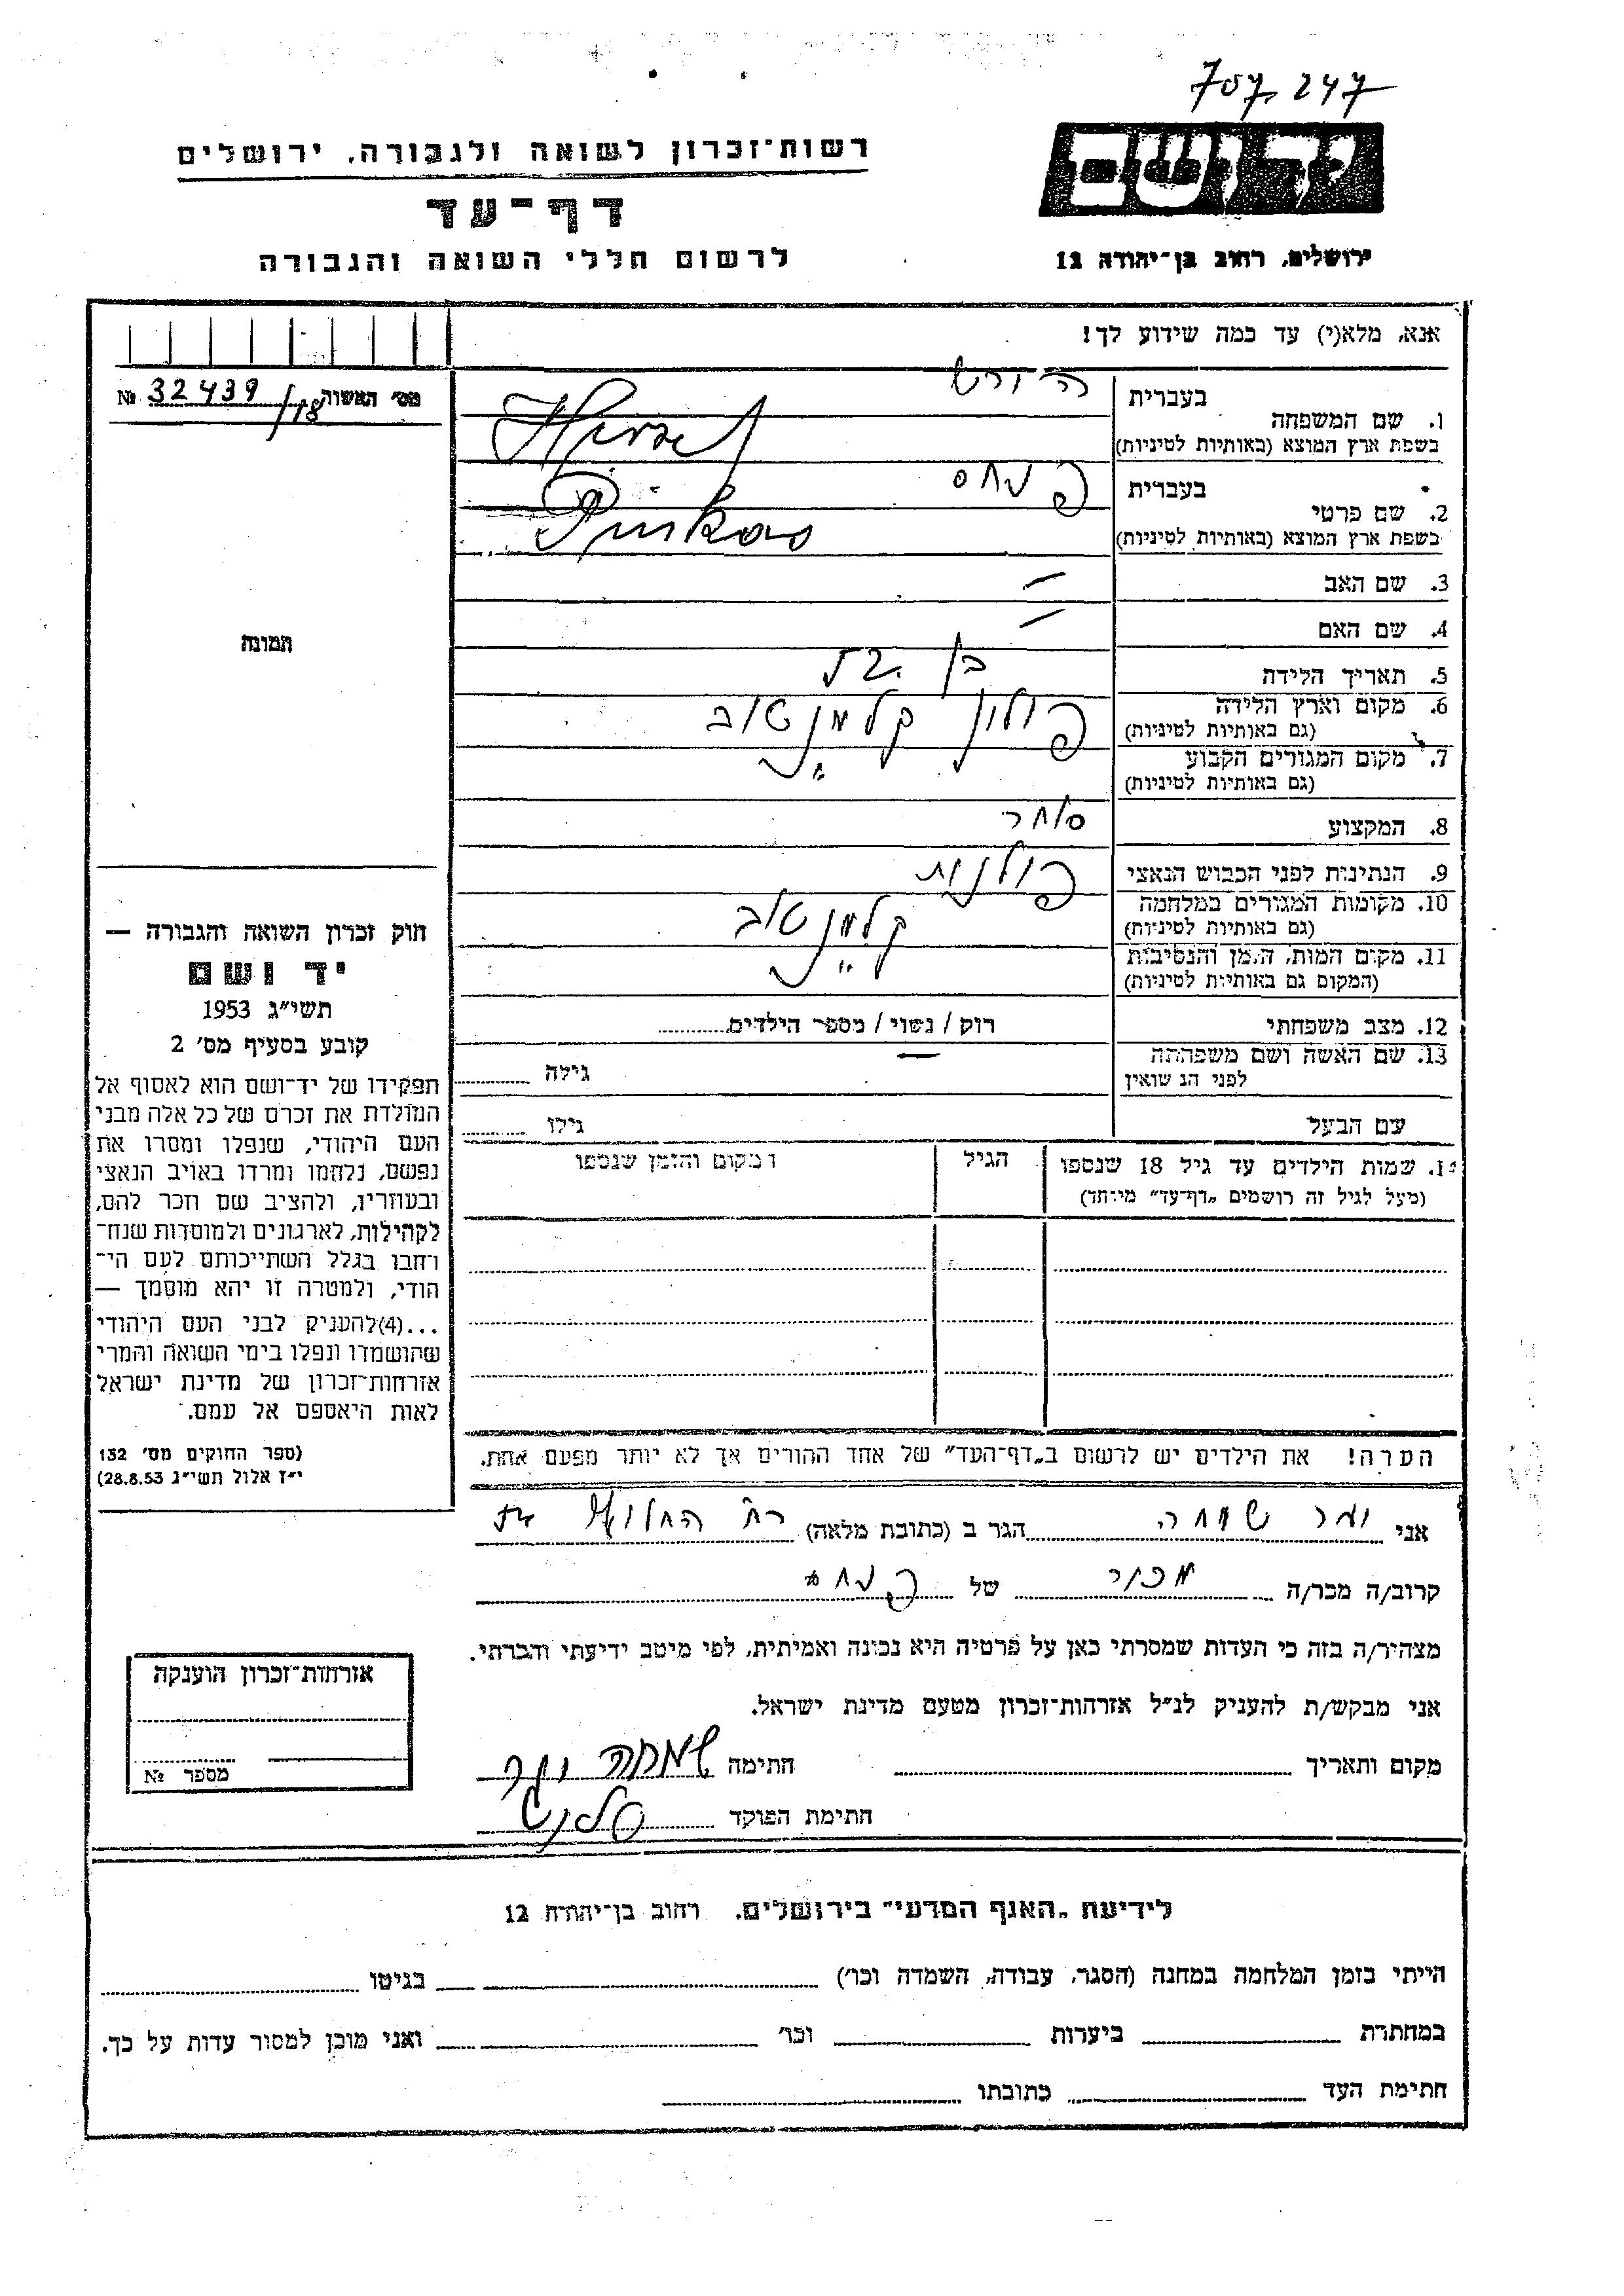 707, 247
יד ושם
רשות־זכרון לשואה ולגבורה, ירושלים
דף־עד
ירושלים, רחוב בן־יהודה 12
לרשום חללי השואה והגבורה
אנא, מלא(י) עד כמה שידוע לך!
מס' האשוה № 32439/18
תמונה
1. שם המשפחה
בעברית
הירש
בשפת ארץ המוצא (באותיות לטיניות)
Hirsch
2. שם פרטי
בעברית
פנחס
בשפת ארץ המוצא (באותיות לטיניות)
Pinkas
3. שם האב —
4. שם האם —
5. תאריך הלידה בן
6. מקום וארץ הלידה פולין
(גם באותיות לטיניות)
7. מקום המגורים הקבוע
(גם באותיות לטיניות)
8. המקצוע סוחר
9. הנתינות לפני הכבוש הנאצי פולנית
10. מקומות המגורים במלחמה
(גם באותיות לטיניות)
11. מקום המות, הזמן והנסיבות
(המקום גם באותיות לטיניות)
12. מצב משפחתי רוק / נשוי / מספר הילדים
13. שם האשה ושם משפחתה
לפני הנשואין
גילה
שם הבעל
גילו
שמות הילדים עד גיל 18 שנספו
(מעל לגיל זה רושמים „דף־עד" מיוחד)
הגיל
ומקום והזמן שנספו
הערה! את הילדים יש לרשום ב„דף־העד" של אחד ההורים אך לא יותר מפעם אחת.
חוק זכרון השואה והגבורה —
יד ושם
תשי"ג 1953
קובע בסעיף מס' 2
תפקידו של יד־ושם הוא לאסוף אל
המולדת את זכרם של כל אלה מבני
העם היהודי, שנפלו ומסרו את
נפשם, נלחמו ומרדו באויב הנאצי
ובעוזריו, ולהציב שם וזכר להם,
לקהילות, לארגונים ולמוסדות שנח־
רחבו בגלל השתייכותם לעם הי־
הודי, ולמטרה זו יהא מוסמך —
...(4)להעניק לבני העם היהודי
שהושמדו ונפלו בימי השואה והמרי
אזרחות־זכרון של מדינת ישראל
לאות היאספם אל עמם.
(ספר החוקים מס' 132
י"ז אלול תשי"ג 28.8.53)
אני שמחה הגר ב (כתובת מלאה)
קרוב/ה מכר/ה של פנחס
מצהיר/ה בזה כי העדות שמסרתי כאן על פרטיה היא נכונה ואמיתית, לפי מיטב ידיעתי והכרתי.
אני מבקש/ת להעניק לנ"ל אזרחות־זכרון מטעם מדינת ישראל.
מקום ותאריך חתימה שמחה
חתימת הפוקד
אזרחות־זכרון הוענקה
מספר №
לידיעת „האגף המדעי" בירושלים, רחוב בן־יהודה 12
הייתי בזמן המלחמה במחנה (הסגר, עבודה, השמדה וכו') בגיטו
במחתרת ביערות וכו' ואני מוכן למסור עדות על כך.
חתימת העד כתובתו